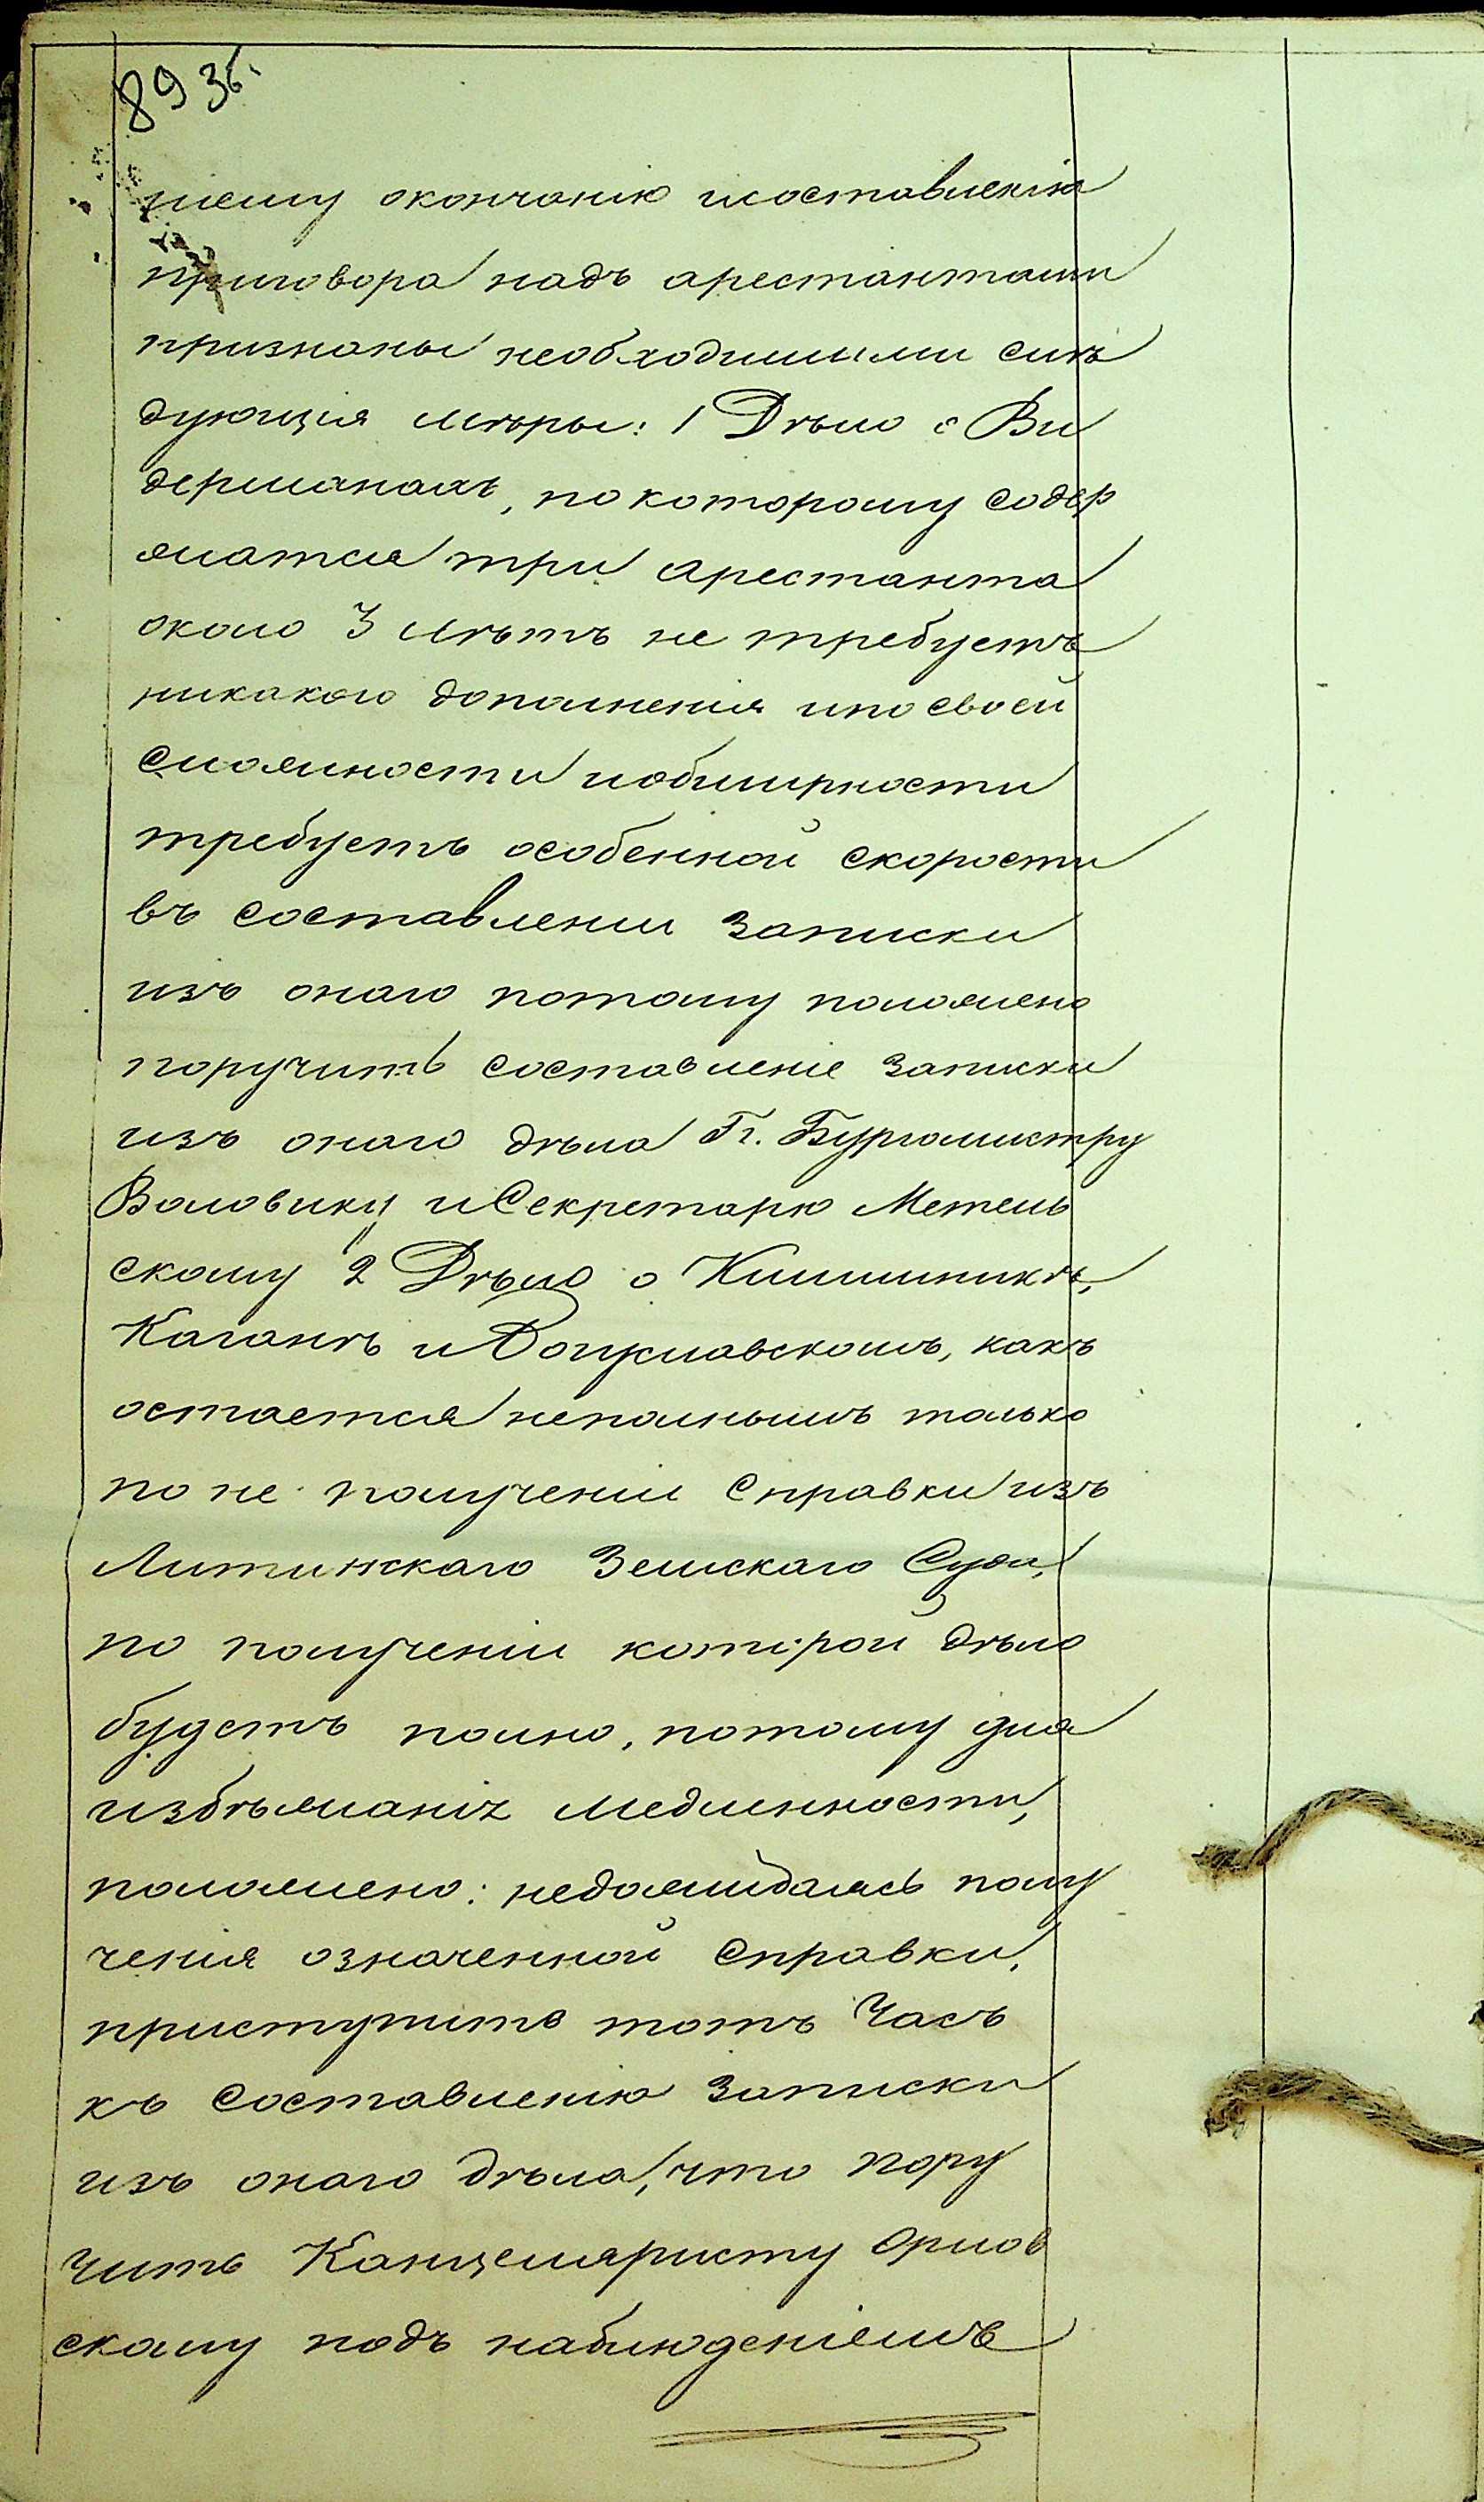 89 зв.
шему окончанію исоставленію
приговора надъ арестантами
признаны необходимыми слѣ
дующія мѣры: 1 Дѣло о Ви
дерманахъ, по которому содер
жатся три арестанта
около 3 лѣтъ не требуетъ
никакого дополненія ипо своей
сложности иобширности
требуетъ особенной скорости
въ составленіи записки
изъ онаго потому положено
поручить составленіе записки
изъ онаго дѣла Гг. Бургомистру
Воловику иСекретарю Метель
скому 2 Дѣло о Кишиникѣ,
Каганѣ и как
остается неполнымъ только
по не полученіи справки изъ
Литинскаго Земскаго Суда,
по полученіи которой дѣло
будетъ полно, потому для
избѣжанія медленности,
положено: недожидаясь полу
ченія означенной справки,
приступить тотъ часъ
къ составленію записки
изъ онаго дѣла, что пору
чить Канцеляристу Орлов
скому подъ наблюденіемъ